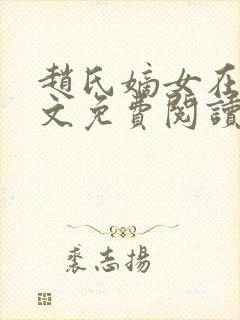 趙氏嫡女在
文免費閱讀
裘志揚